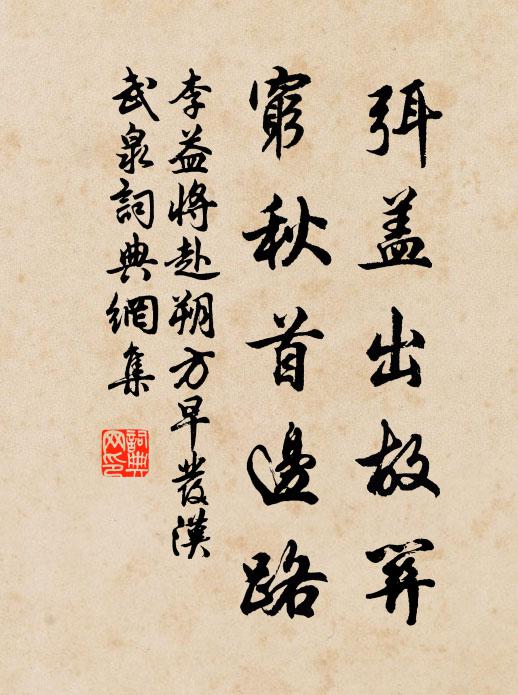 弭盖出故關
窮秋首邊路
李益將赴朔方早發漢
武泉詞典網集
詞典
网印